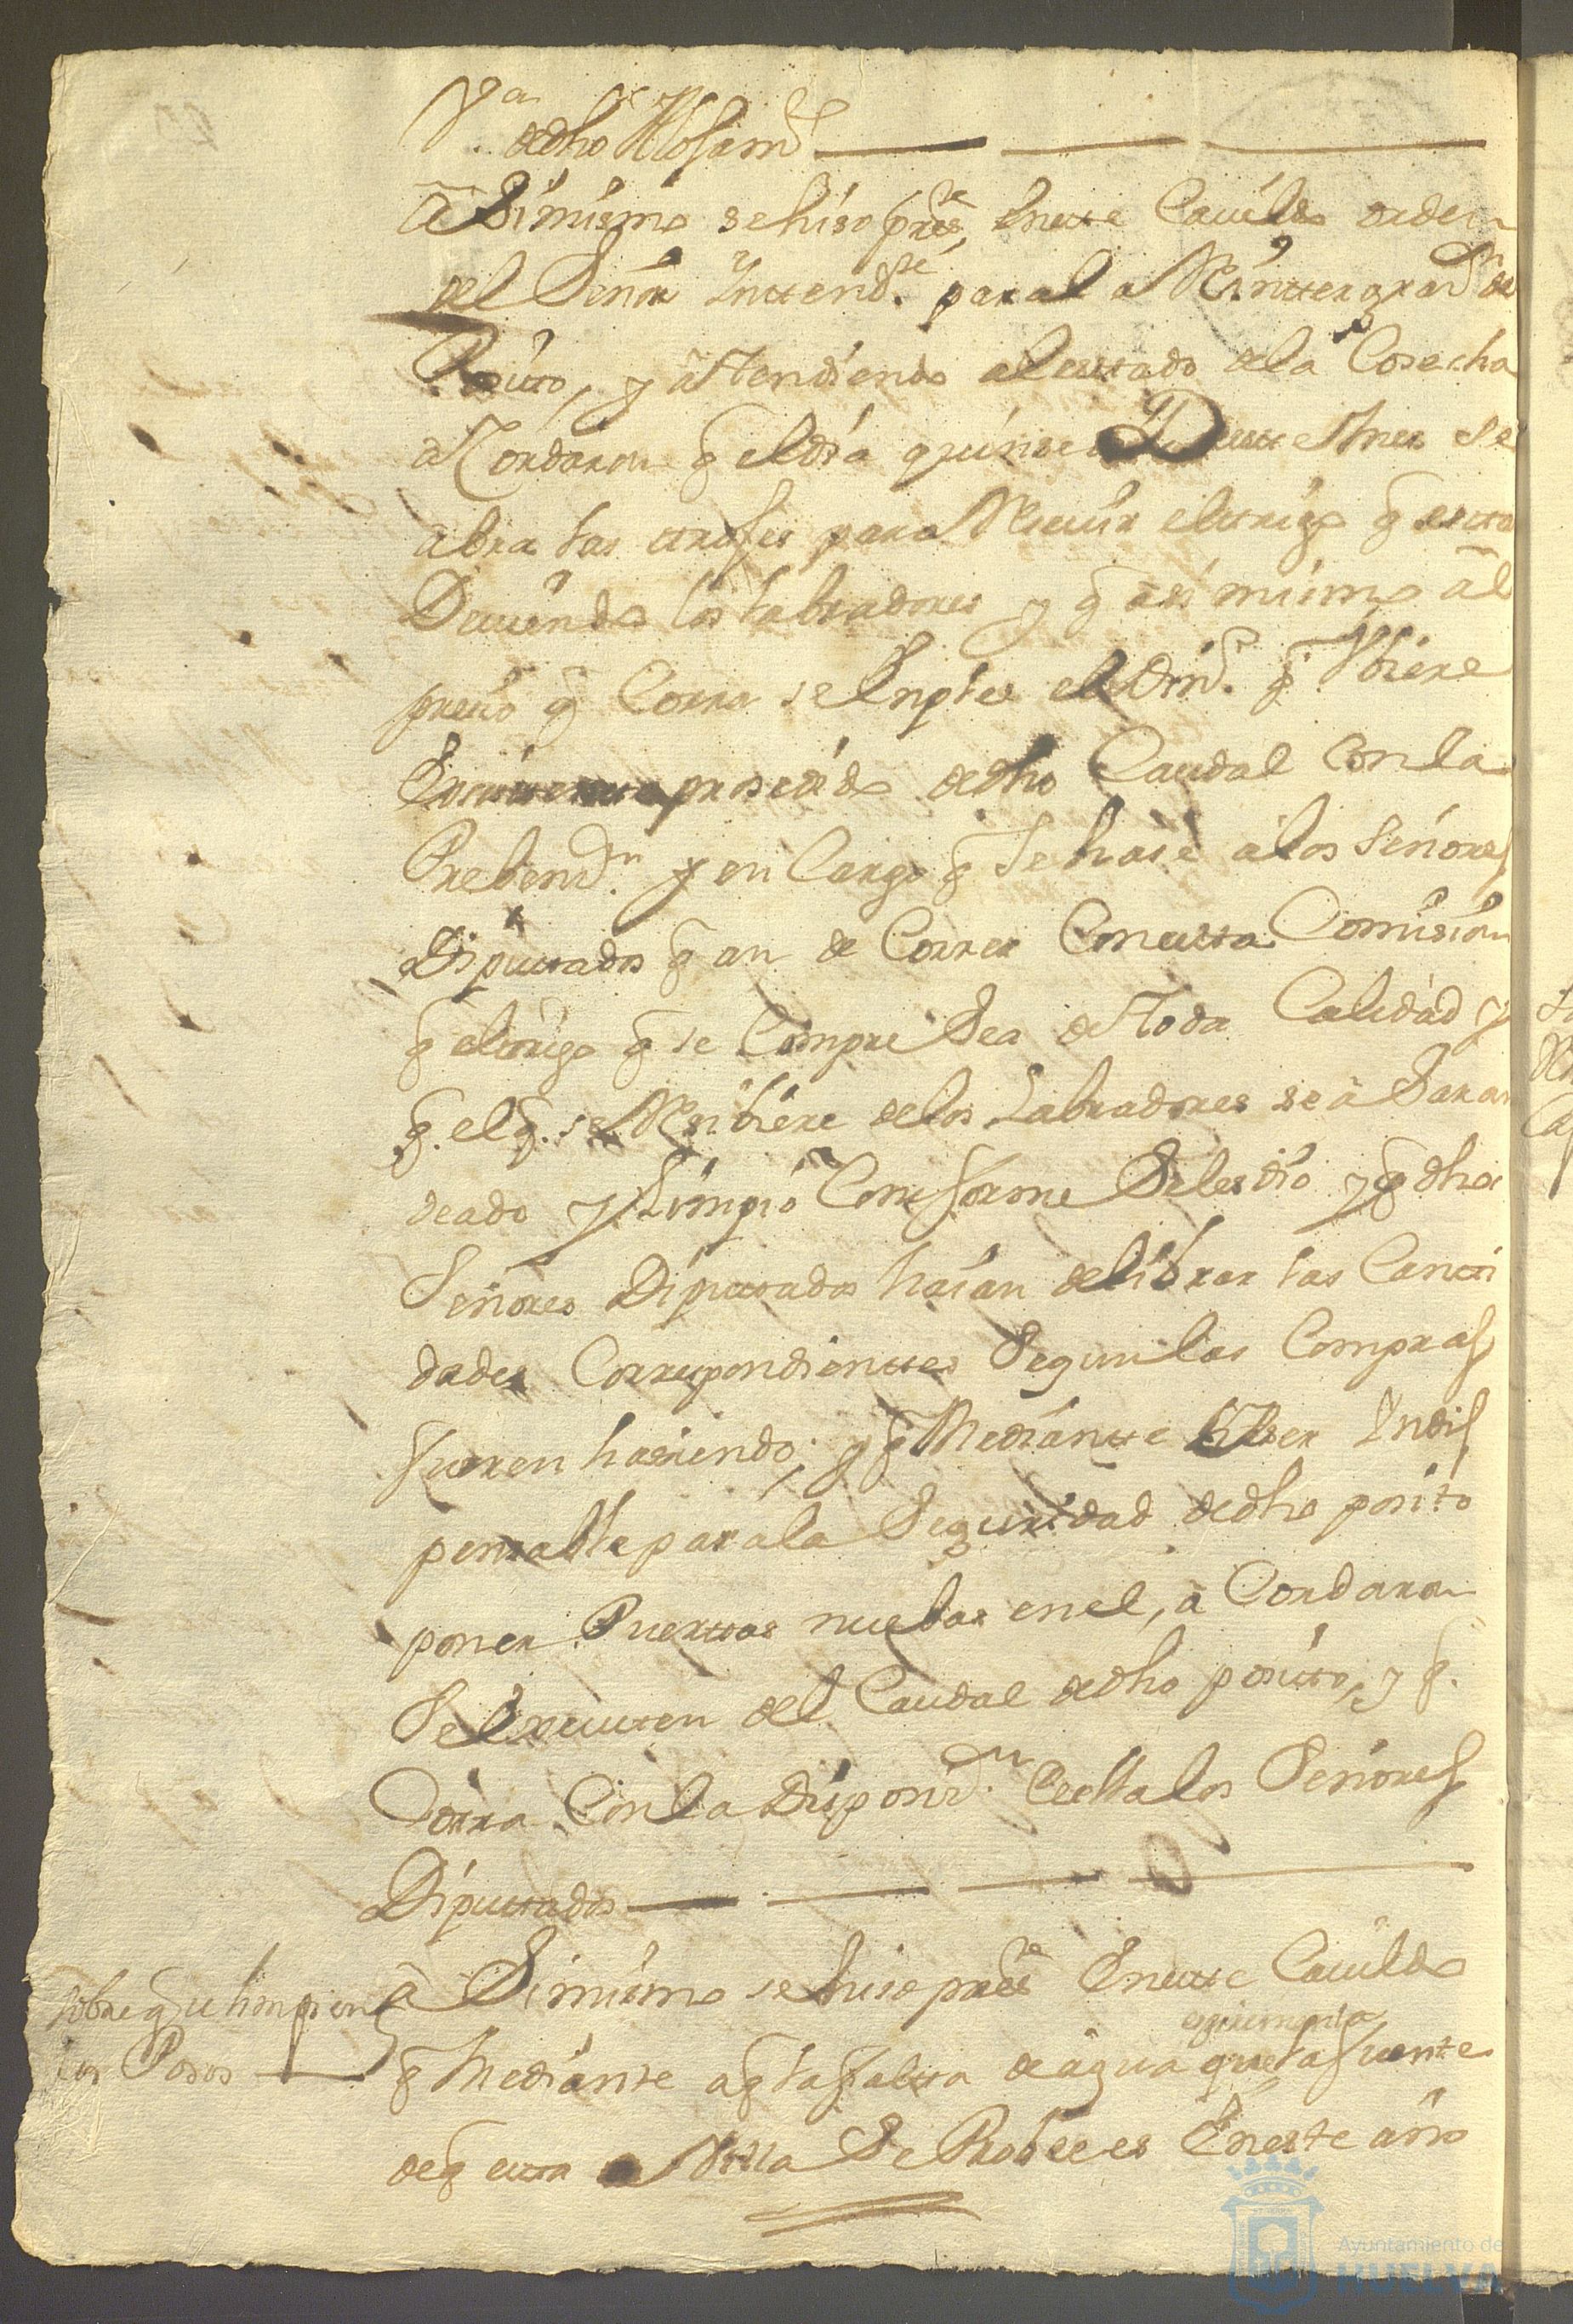 dedho
aSimismo se hiso press.te Eneste Cauildo orden
del Señor Inttend.te para la Reintegraz.n de
Posito, y attendiendo al esttado de la Cosecha
acordaron q̃ el dia quinse Deeste Mes se
abra las troxes para Reciuir el trigo q̃ estan
Deuiendo los labradores y q̃ asi mismo al
precio q̃ Corra se Enplee el Din.o q̃ Vbiere
prosedido dedho Caudal Con la
Prebenz.n y en Cargo q̃ Se hase a los Señores
Diputtados q̃ an de Correr Conesta Comision
q̃ el trigo q̃ se Compre Sea de Toda Calidad y
q̃ el q̃ se Resibiere de los Labradores sea Saran
deado y Limpio Comforme Seles dio y q̃ dhos
Señores Diputtados haian de librar las Canti
dades Correspondienttes Segun las Compras
fueren hasiendo; y q̃ Mediantte Ser Indis
pensable para la Seguridad dedho posito
poner Puerttas nuebas en el, a Cordaron
Se Executten del Caudal dedho positto, y q̃
Corra Con la Disposiz.n Deella los Señores
Diputtados
Sobre q̃ se limpien
los Posos
a Simismo se hiso press.te Eneste Cauildo
q̃ Mediante a q̃ la falta de agua que esperimenta la fuente
de q̃ esta Villa Se Probee es Eneste año
Ayuntamiento de
HUELVA